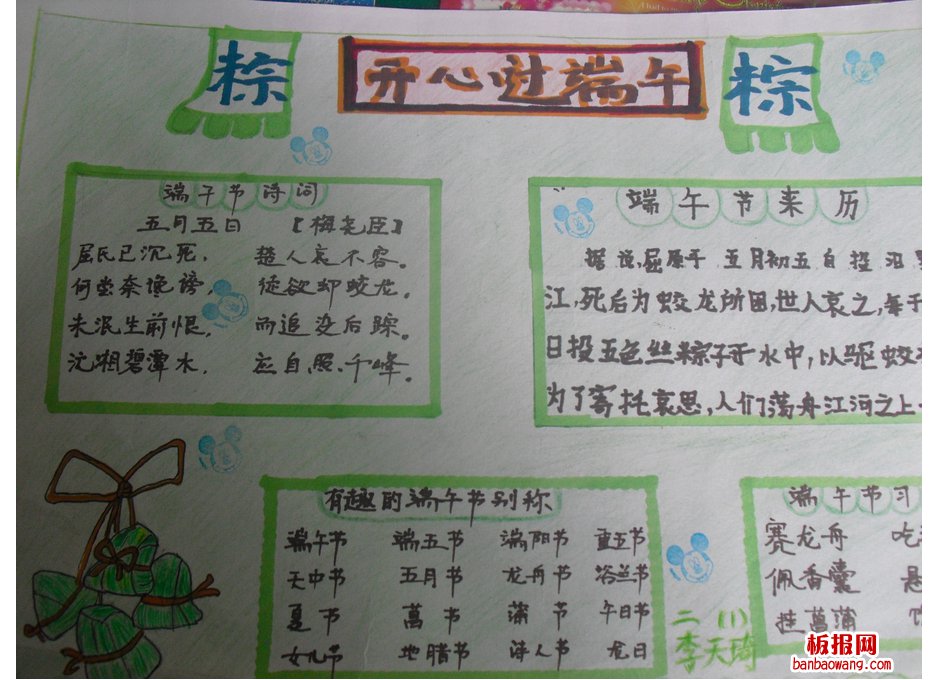 粽 开心过端午 粽
端午节诗词
五月五日 【梅尧臣】
屈氏已沉死, 楚人哀不容。
何尝奈谗谤, 徒欲却蛟龙。
未泯生前恨, 而追没后踪。
沅湘碧潭水, 应自照千峰。
端午节来历
据说,屈原于五月初五日投汨
江,死后为蛟龙所困,世人哀之,每于
日投五色丝粽子于水中,以驱蛟
为了寄托哀思,人们荡舟江河之上
有趣的端午节别称
端午节 端五节 端阳节 重五节
天中节 五月节 龙舟节 浴兰节
夏节 菖节 蒲节 午日节
女儿节 地腊节 诗人节 龙日
端午节习
赛龙舟 吃
佩香囊 悬
挂菖蒲
二(1)
李天琦
板报网
banbaowang.com